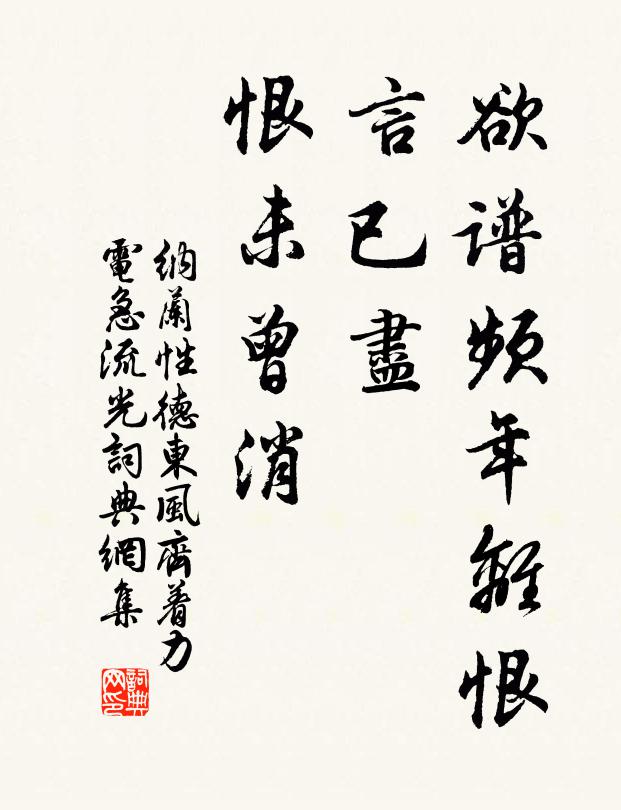 欲谱頻年離恨
言已盡
恨未曾消
納蘭性德東風齊着力
電急流光詞典網集
詞典
网印